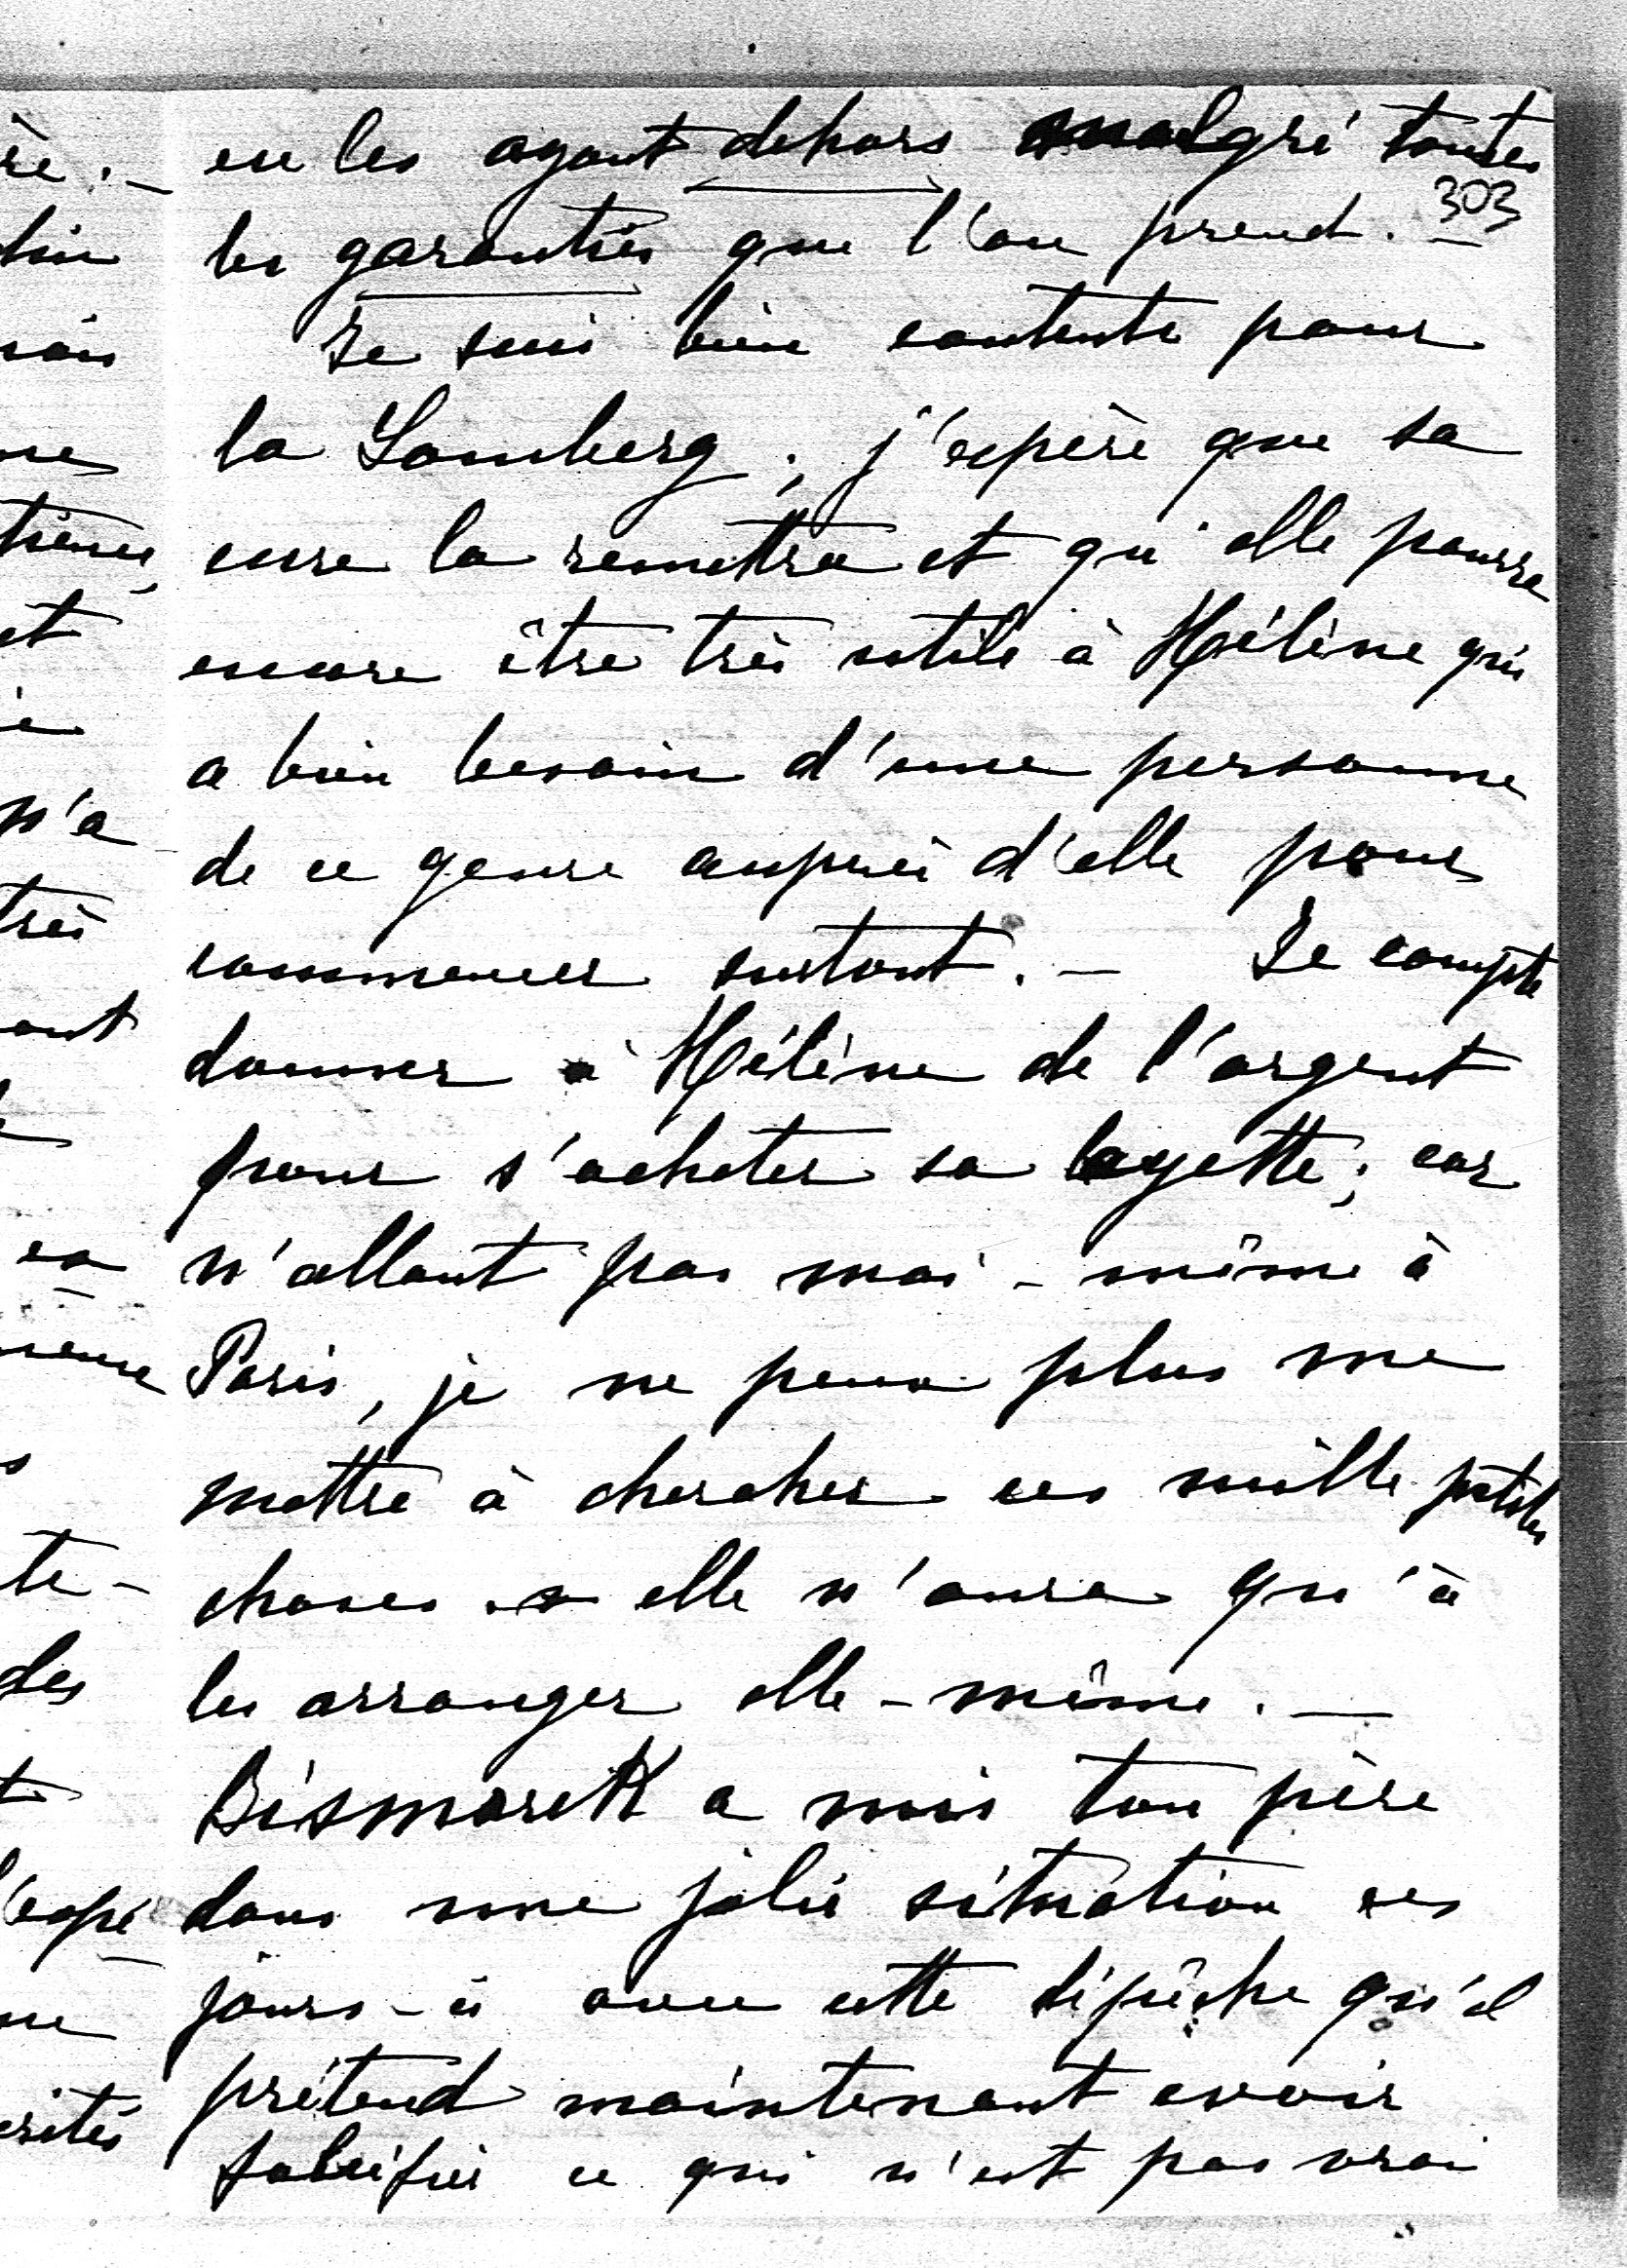 en les ayant dehors malgré toutes
303
les garanties que l'on prend. —
Je suis bien contente pour
la Lomberg ; j'espère que sa
cure la remettra et qu'elle pourra
encore être très utile à Hélène qui
a bien besoin d'une personne
de ce genre auprès d'elle pour
commencer surtout. — Je compte
donner à Hélène de l'argent
pour s'acheter sa layette ; car
n'allant pas moi-même à
Paris, je ne peux plus me
mettre à chercher ces mille petites
choses elle n'aura qu'à
les arranger elle-même. —
Bismarck a mis ton père
dans une jolie situation ces
jours-ci avec cette dépêche qu'il
prétend maintenant avoir
falsifié ce qui n'est pas vrai